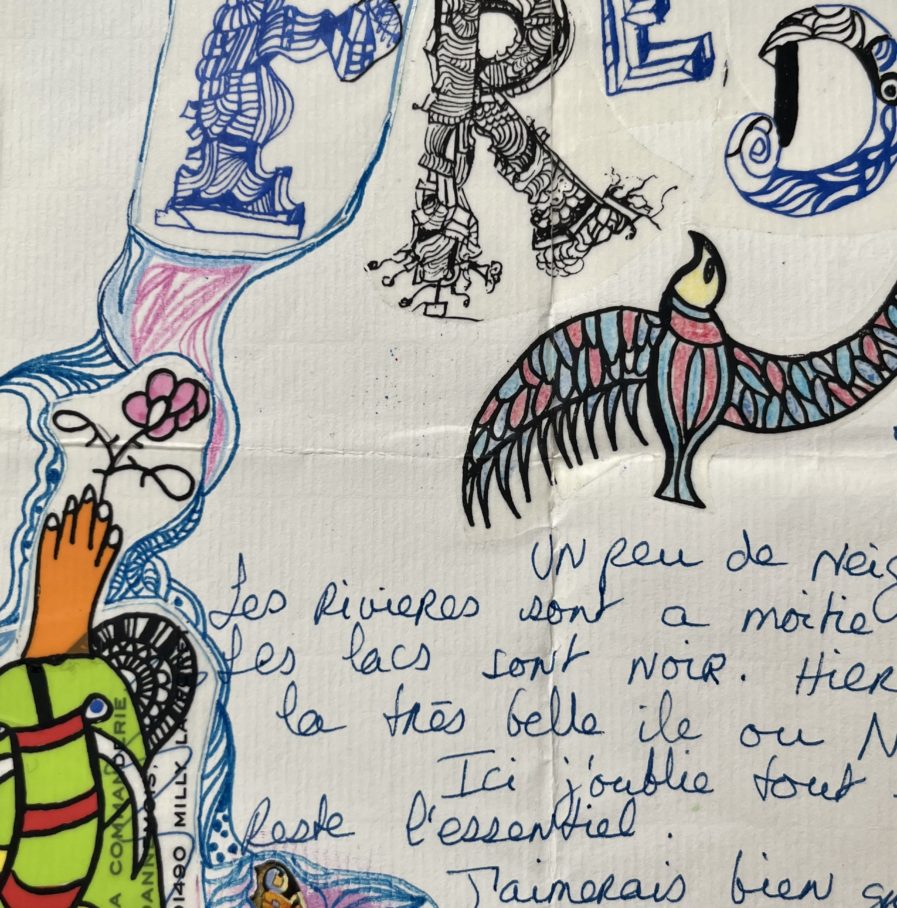 FRED
UN peu de Neig
Les RivieRes sont a moitie
Les lacs sont NoiR. HIER
la très belle ile ou N
Ici j'oublie tout
Reste l'essentiel.
J'aimerais bien
A COMMANDERIE
91490 MILLY LA